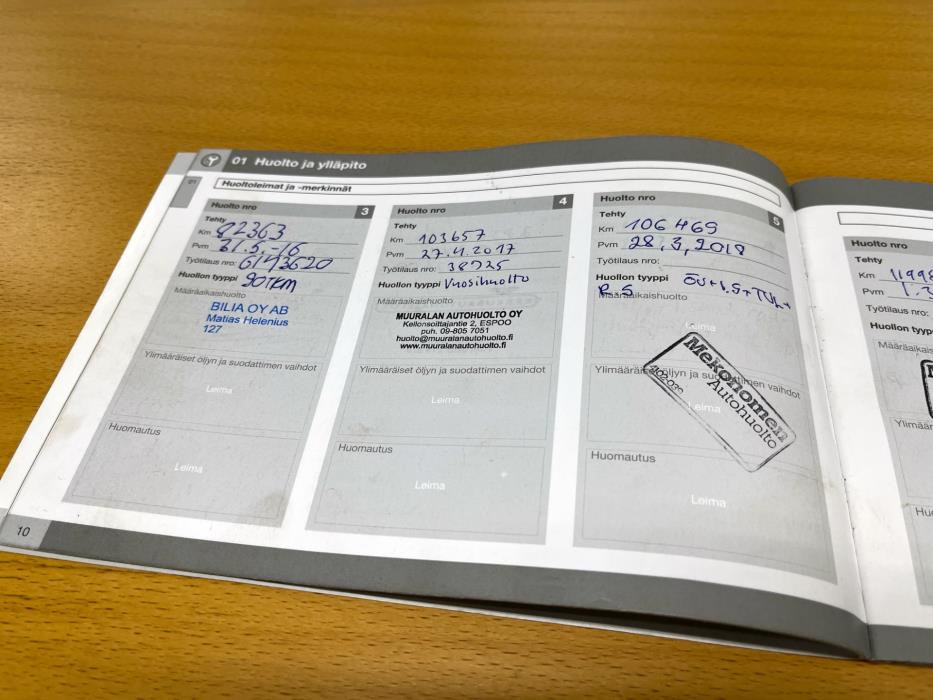 01 Huolto ja ylläpito
01
Huoltoleimat ja -merkinnät
Huolto nro 3
Tehty
Km 82363
Pvm 31.5.-16
Työtilaus nro: 6143620
Huollon tyyppi 90TKM
Määräaikaishuolto
BILIA OY AB
Matias Helenius
127
Ylimääräiset öljyn ja suodattimen vaihdot
Leima
Huomautus
Leima
10
Huolto nro 4
Tehty
Km 103657
Pvm 27.4.2017
Työtilaus nro: 38725
Huollon tyyppi Vuosihuolto
Määräaikaishuolto
MUURALAN AUTOHUOLTO OY
Kellonsoittajantie 2, ESPOO
puh. 09-805 7051
huolto@muuralanautohuolto.fi
www.muuralanautohuolto.fi
Ylimääräiset öljyn ja suodattimen vaihdot
Leima
Huomautus
Leima
Huolto nro 5
Tehty
Km 106469
Pvm 28.3.2018
Työtilaus nro:
Huollon tyyppi
R.S
Määräaikaishuolto
Leima
Ylimääräiset öljyn ja suodattimen vaihdot
Leima
Mekonomen
Autohuolto
Huomautus
Leima
Huolto nro
Tehty
Km
Pvm
Työtilaus nro:
Huollon tyypp
Määräaikais
Ylimäär
Hu